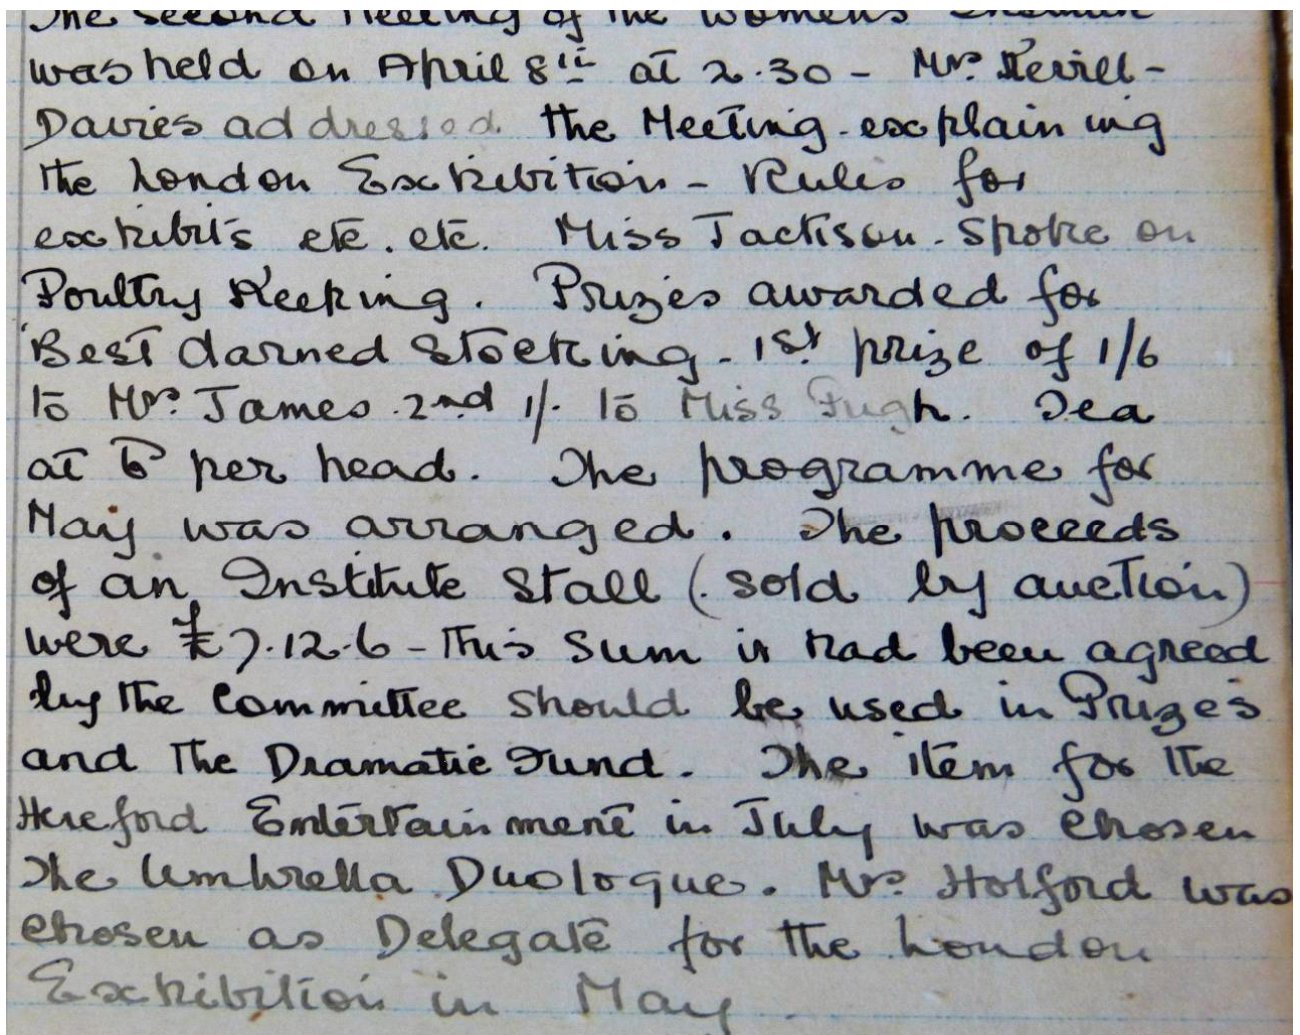 The second Meeting of the Women's
was held on April 8th at 2.30 - Mrs. Kevill-
Davies addressed the Meeting - explaining
the London Exhibition - Rules for
exhibits etc. etc. Miss Jackson - Spoke on
Poultry Keeping. Prizes awarded for
Best darned Stocking - 1st prize of 1/6
to Mrs. James. 2nd 1/- to Miss Pugh. Tea
at 6 per head. The programme for
May was arranged. The proceeds
of an Institute Stall (sold by auction)
were £7.12.6 - This Sum it had been agreed
by the Committee should be used in Prizes
and the Dramatic Fund. The item for the
Hereford Entertainment in July was chosen
The Umbrella Duologue. Mrs. Holford was
chosen as Delegate for the London
Exhibition in May.